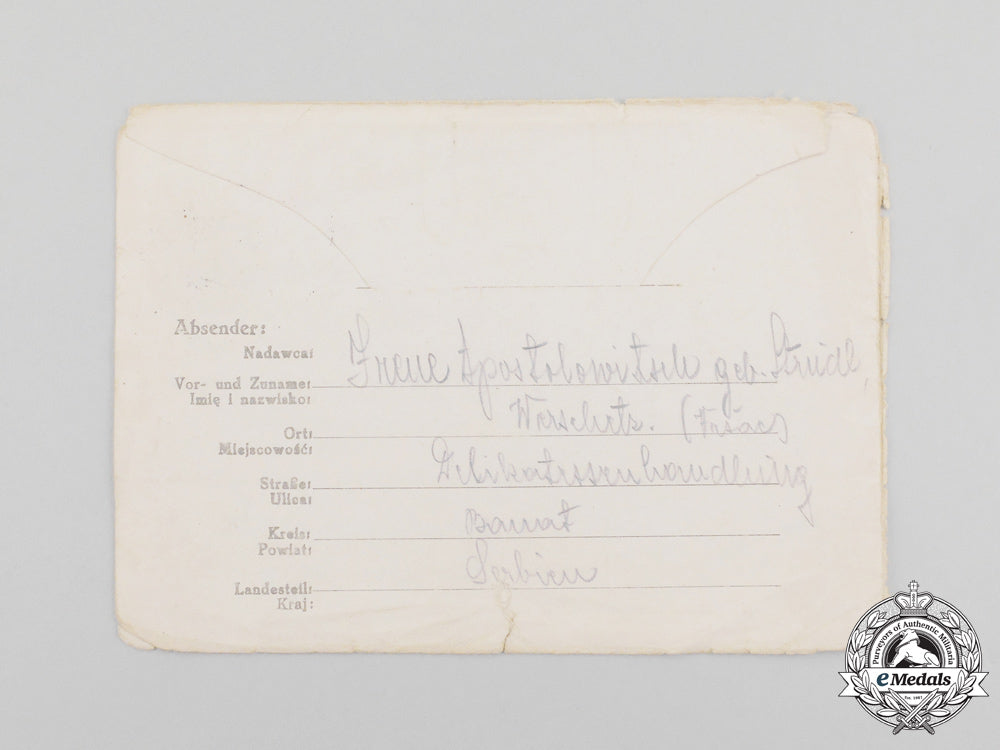 Absender:
Nadawca:
Vor- und Zuname: Irene Apostolowitsch geb. Strudl,
Imię i nazwisko:
Werschetz. (Vršac)
Ort:
Miejscowość:
Delikatessenhandlung
Straße:
Ulica:
Banat
Kreis:
Powiat:
Serbien
Landesteil:
Kraj:
Purveyors of Authentic Militaria
eMedals
Est. 1967